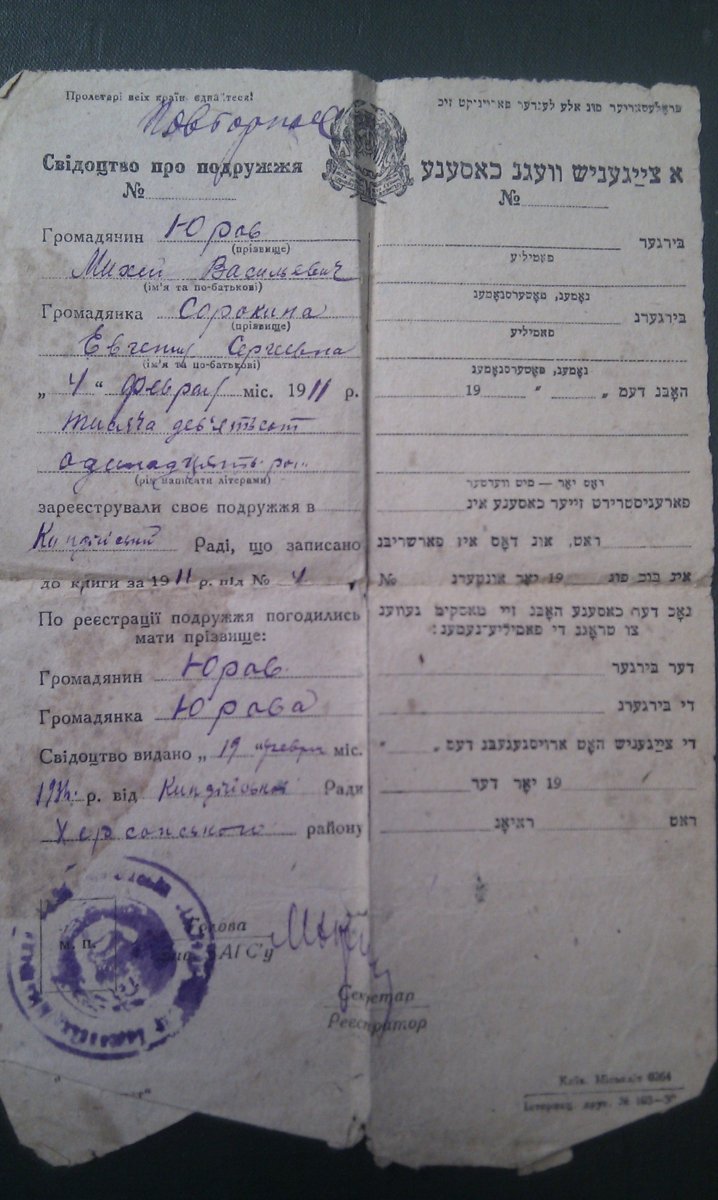 Пролетарі всіх країн, єднайтеся!
Повторное
Свідоцтво про подружжя
№
Громадянин Юров
(прізвище)
Михей Васильевич
(ім'я та по-батькові)
Громадянка Сорокина
(прізвище)
Евгения Сергеевна
(ім'я та по-батькові)
„ 4 “ феврал міс. 1911 р.
тисяча дев'ятсот
(рік написати літерами)
зареєстрували своє подружжя в
Раді, що записано
до книги за 1911 р. під № 4
По реєстрації подружжя погодились
мати прізвище:
Громадянин Юров
Громадянка Юрова
Свідоцтво видано „ 19 “ міс.
р. від Ради
Херсонського району
м. п.
Голова
АГС'у
Секретар
Реєстратор
פּראָלעטאריער פון אלע לענדער פאראייניקט זיך
א צייגעניש וועגן כאסענע
№
בירגער
פאמיליע
נאָמען, פאָטערסנאָמען
בירגערן
פאמיליע
נאָמען, פאָטערסנאָמען
האָבן דעם „ “ 19
דאָס יאָר — מיט ווערטער
פארעגיסטרירט זייער כאסענע אין
ראט, און דאָס איז פארשריבן
אין בוך פון 19 יאָר אונטערן №
נאָך דער כאסענע האָבן זיי מאסקים געווען
צו טראָגן די פאמיליע־נעמען:
דער בירגער
די בירגערן
די צייגעניש האָט ארויסגעגעבן דעם „ “
19 יאָר דער
ראט ראיאָן
Київ. Міськліт 0264